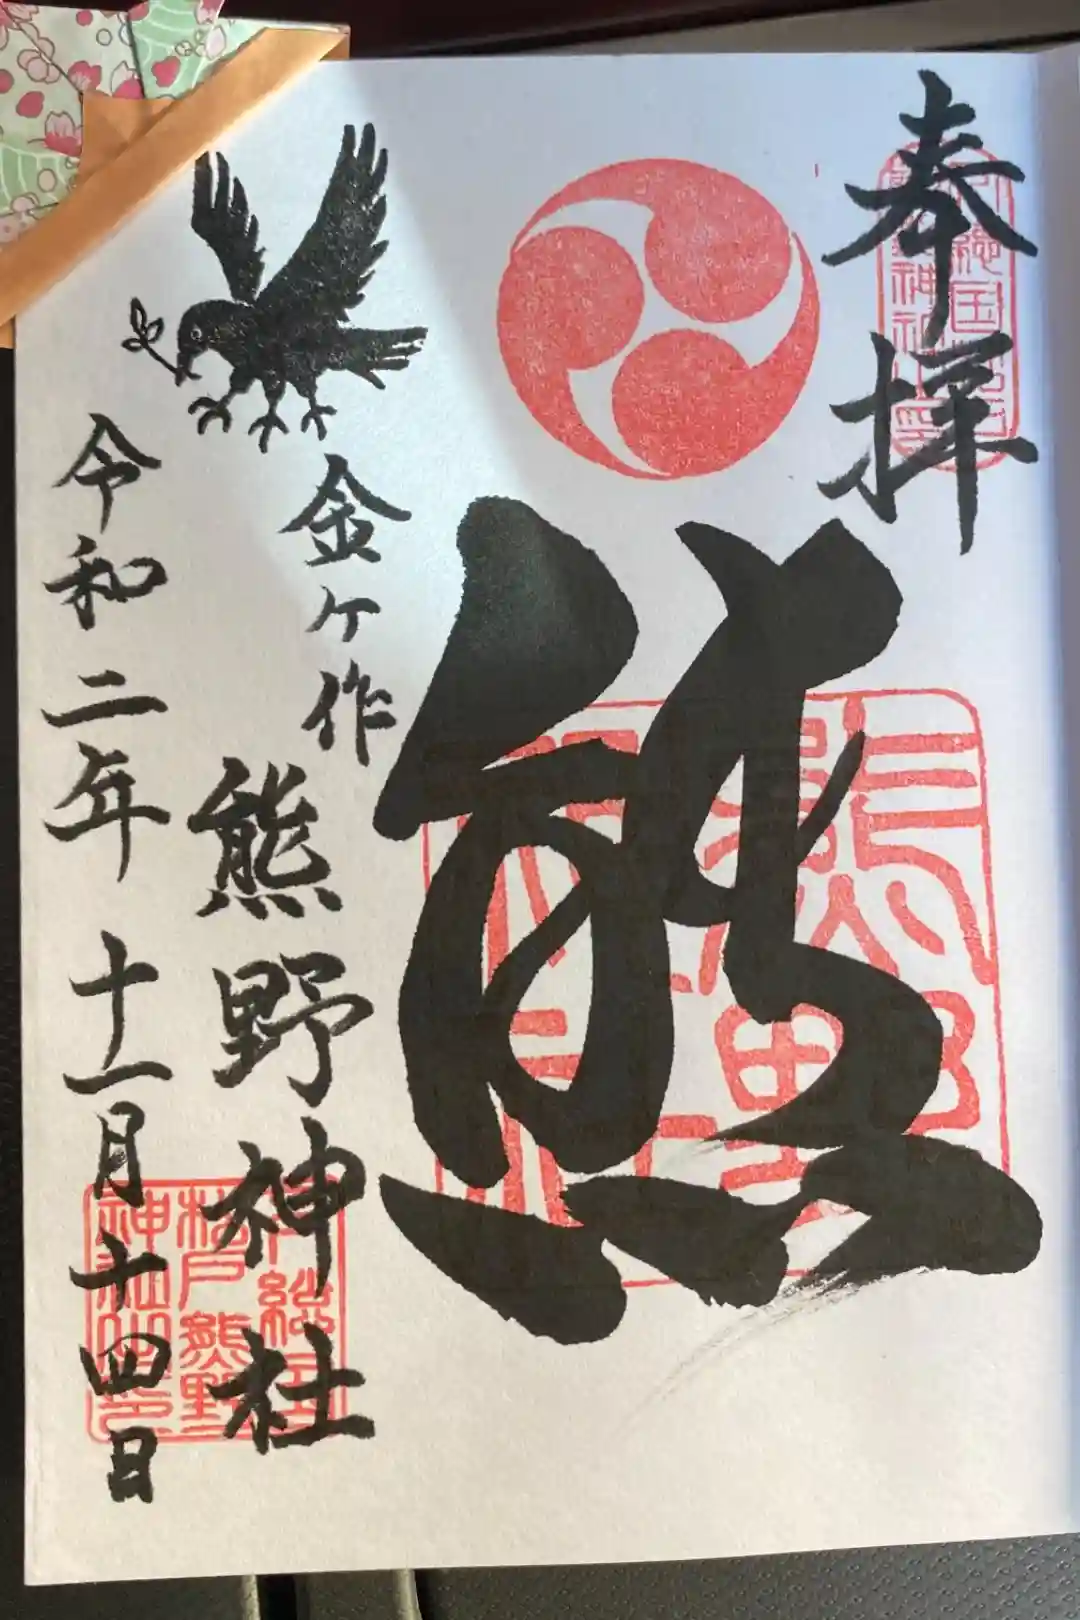 奉拝
熊
金ヶ作
熊野神社
令和二年十一月十四日